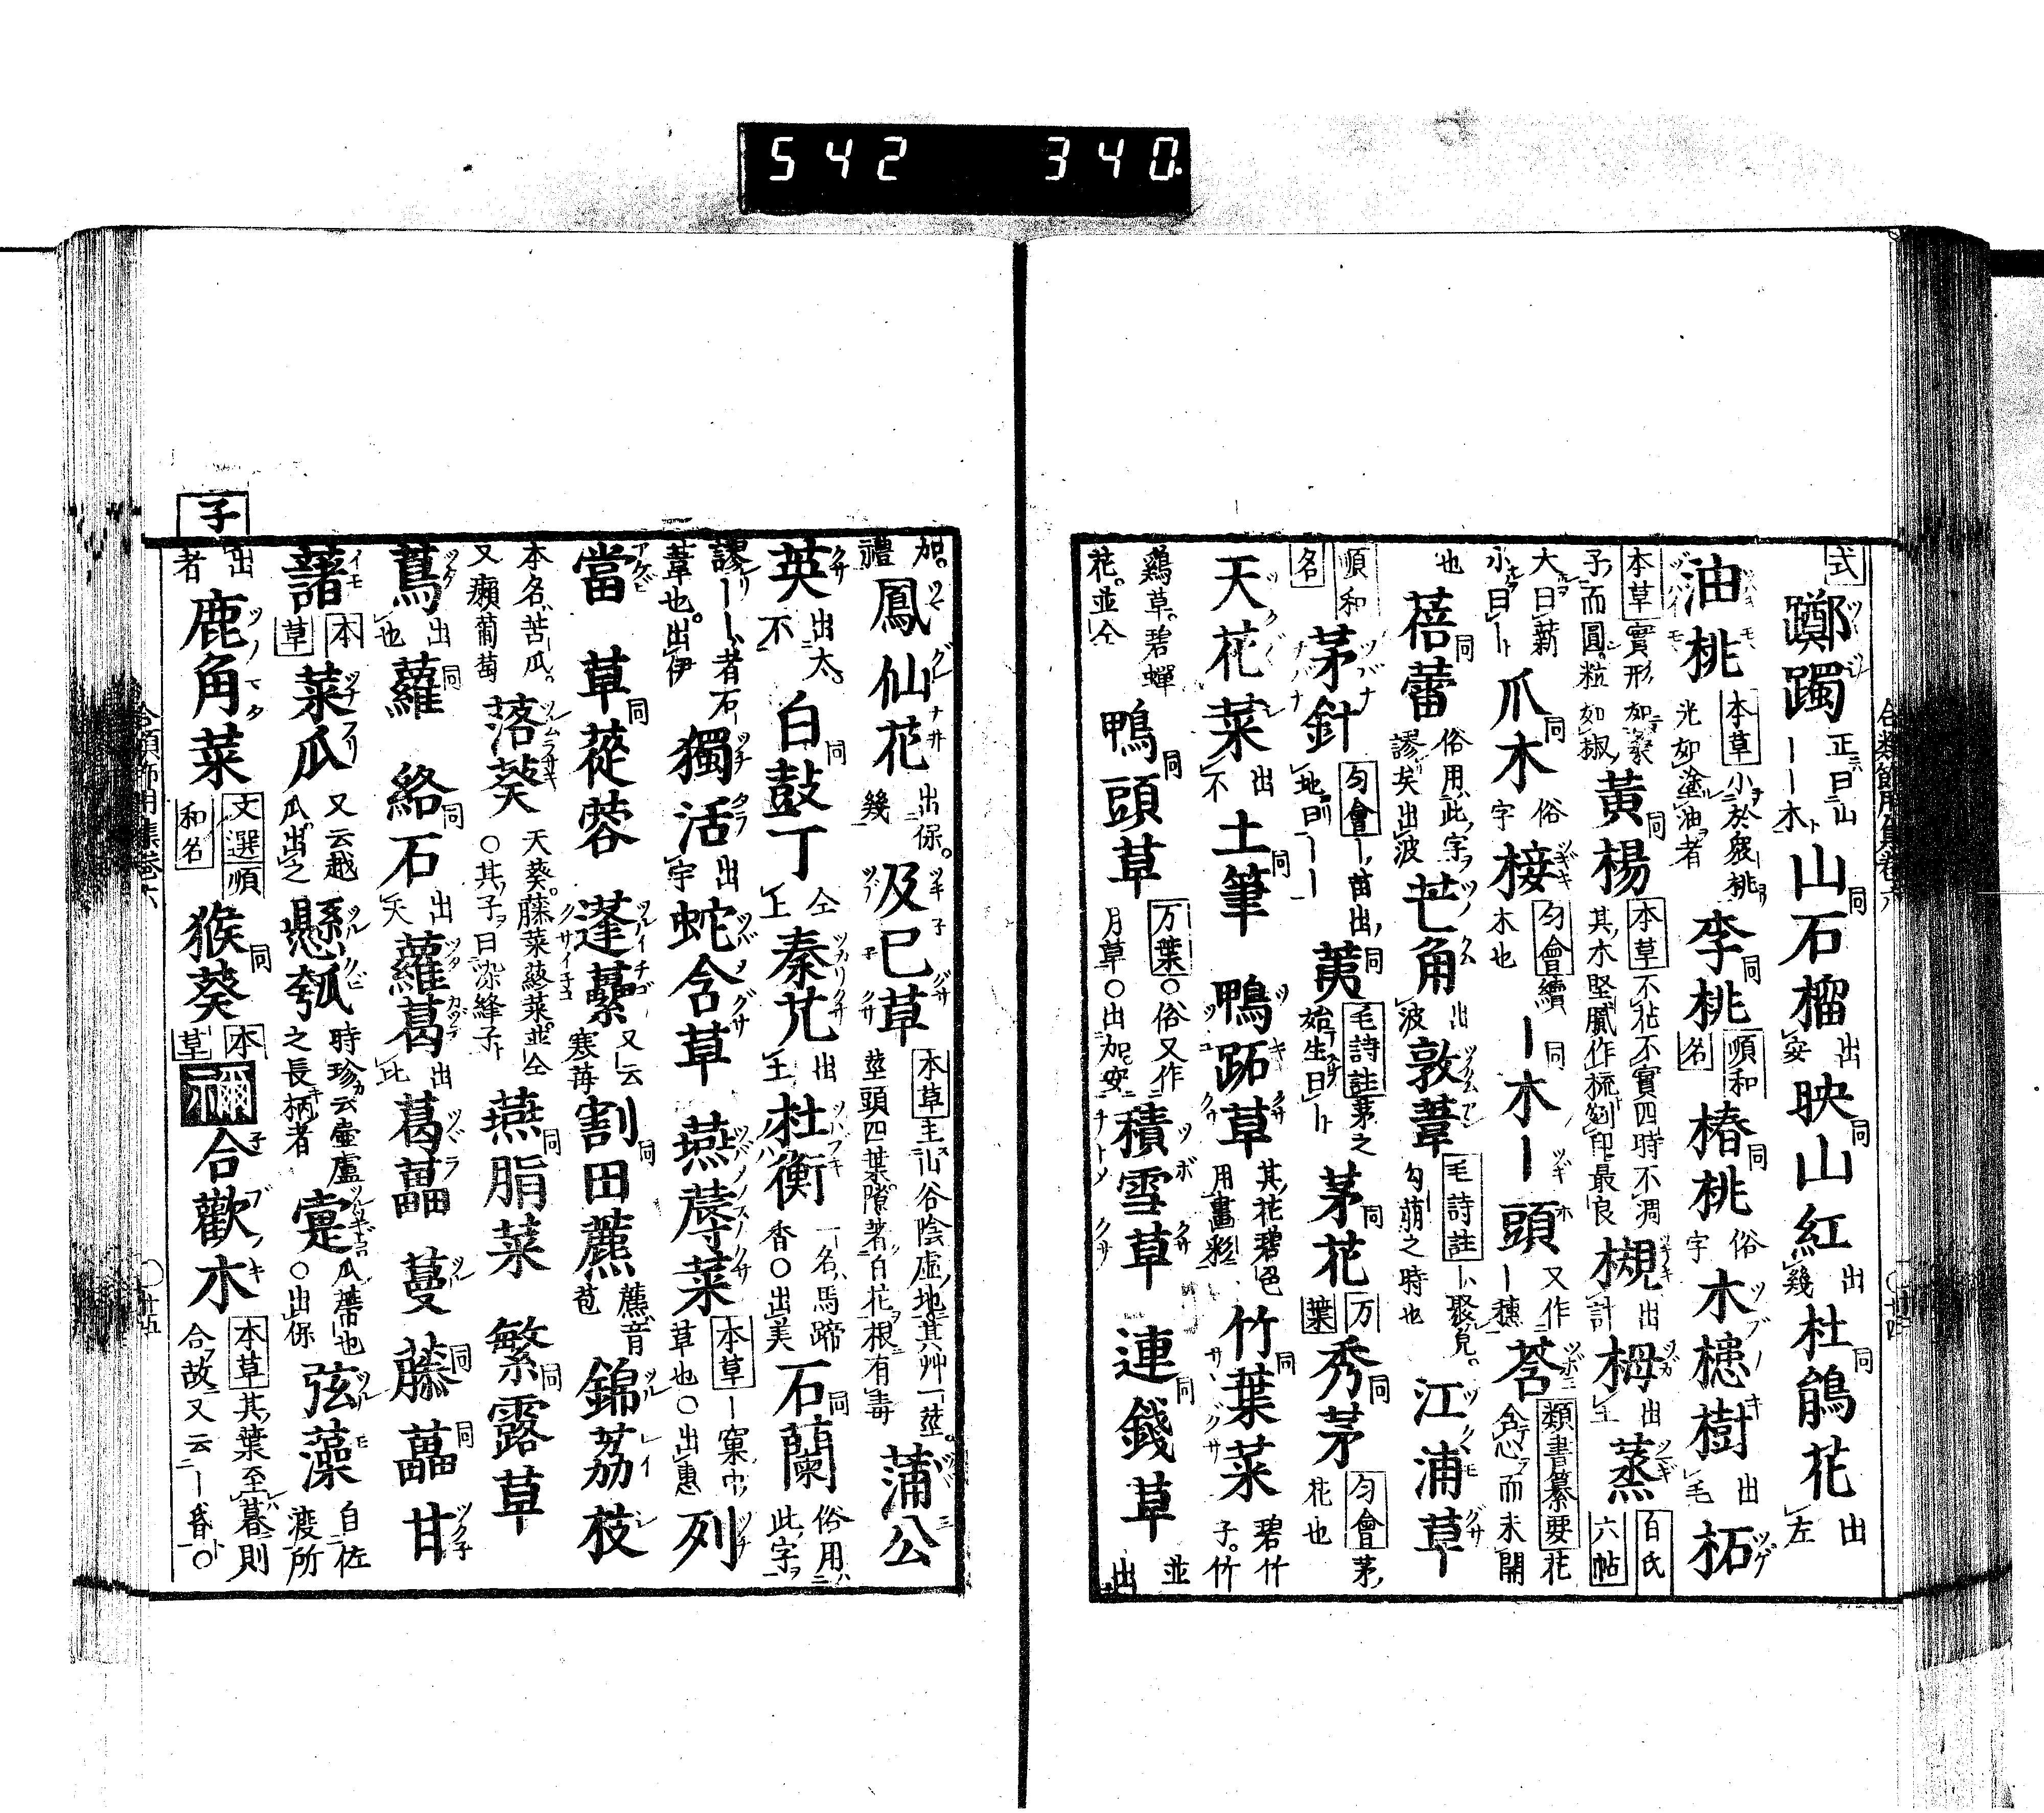 542 340.
合類節用集卷六
式
躑躅 正曰山
――木 山石榴 同 出安 映山紅 同 出幾 杜鵑花 同 出左
油桃 本草 小於衆桃
光如塗油者 李桃 同 順和名 椿桃 同 俗字 木槵樹 出毛 柘
本草 實形如
子而圓粒如椒 黃楊 同 本草 不花不實四時不凋
其木堅膩作梳剜印最良 槻 出計 栂 出 蒸 白氏六帖
大曰薪
小曰― 爪木 同 俗字 椄 匀會 續木也 ―木 同 ―頭 又作
―穗 莟 類書纂要 花
含心而未開
也 蓓蕾 同 俗用此字
謬矣出波 芒角 出波 敦葦 毛詩註 ―聚皃
勾萌之時也 江浦草
順和名 茅針 匀會 ―苗出
地曰―― 荑 同 毛詩註 茅之
始生曰― 茅花 同 万葉 秀茅 同 匀會 茅
花也
天花菜 出不 土筆 同 鴨跖草 其花碧色
用畫彩 竹葉菜 同 碧竹
子竹
鷄草碧蟬
花並仝 鴨頭草 同 万葉○俗又作
月草○出加安 積雪草 連錢草 同 並出
加
禮 鳳仙花 出保
幾 及已草 本草 生山谷陰虛地其艸一莖
莖頭四葉隙著白花根有毒 蒲公
英 出太
不 白鼓丁 同 仝上 秦艽 出王 杜衡 一名馬蹄
香○出美 石蘭 同 俗用
此字
謬――者石
葦也出伊 獨活 出宇 蛇含草 燕蓐菜 本草 ―窠中
草也○出惠 列
當 草蓯蓉 同 蓬虆 又云
寒莓 割田藨 同 藨音
苞 錦荔枝
本名苦瓜
又癩葡萄 落葵 天葵藤菜蔠菜並仝
○其子曰染絳子 燕脂菜 同 繁露草 同
蔦 出也 蘿 同 絡石 同 出天 蘿葛 出此 葛藟 蔓 藤 同 藟 同 甘
藷 本草 菜瓜 又云越
瓜出之 懸瓠 時珍云壷盧
之長柄者 疐 瓜蔕也
○出保 弦藻 自佐
渡所
出
者 鹿角菜 文選順和名 猴葵 同 本草 禰 合歡木 本草 其葉至暮則
合故又云―昏○
子
合類節用集卷六
○廿五